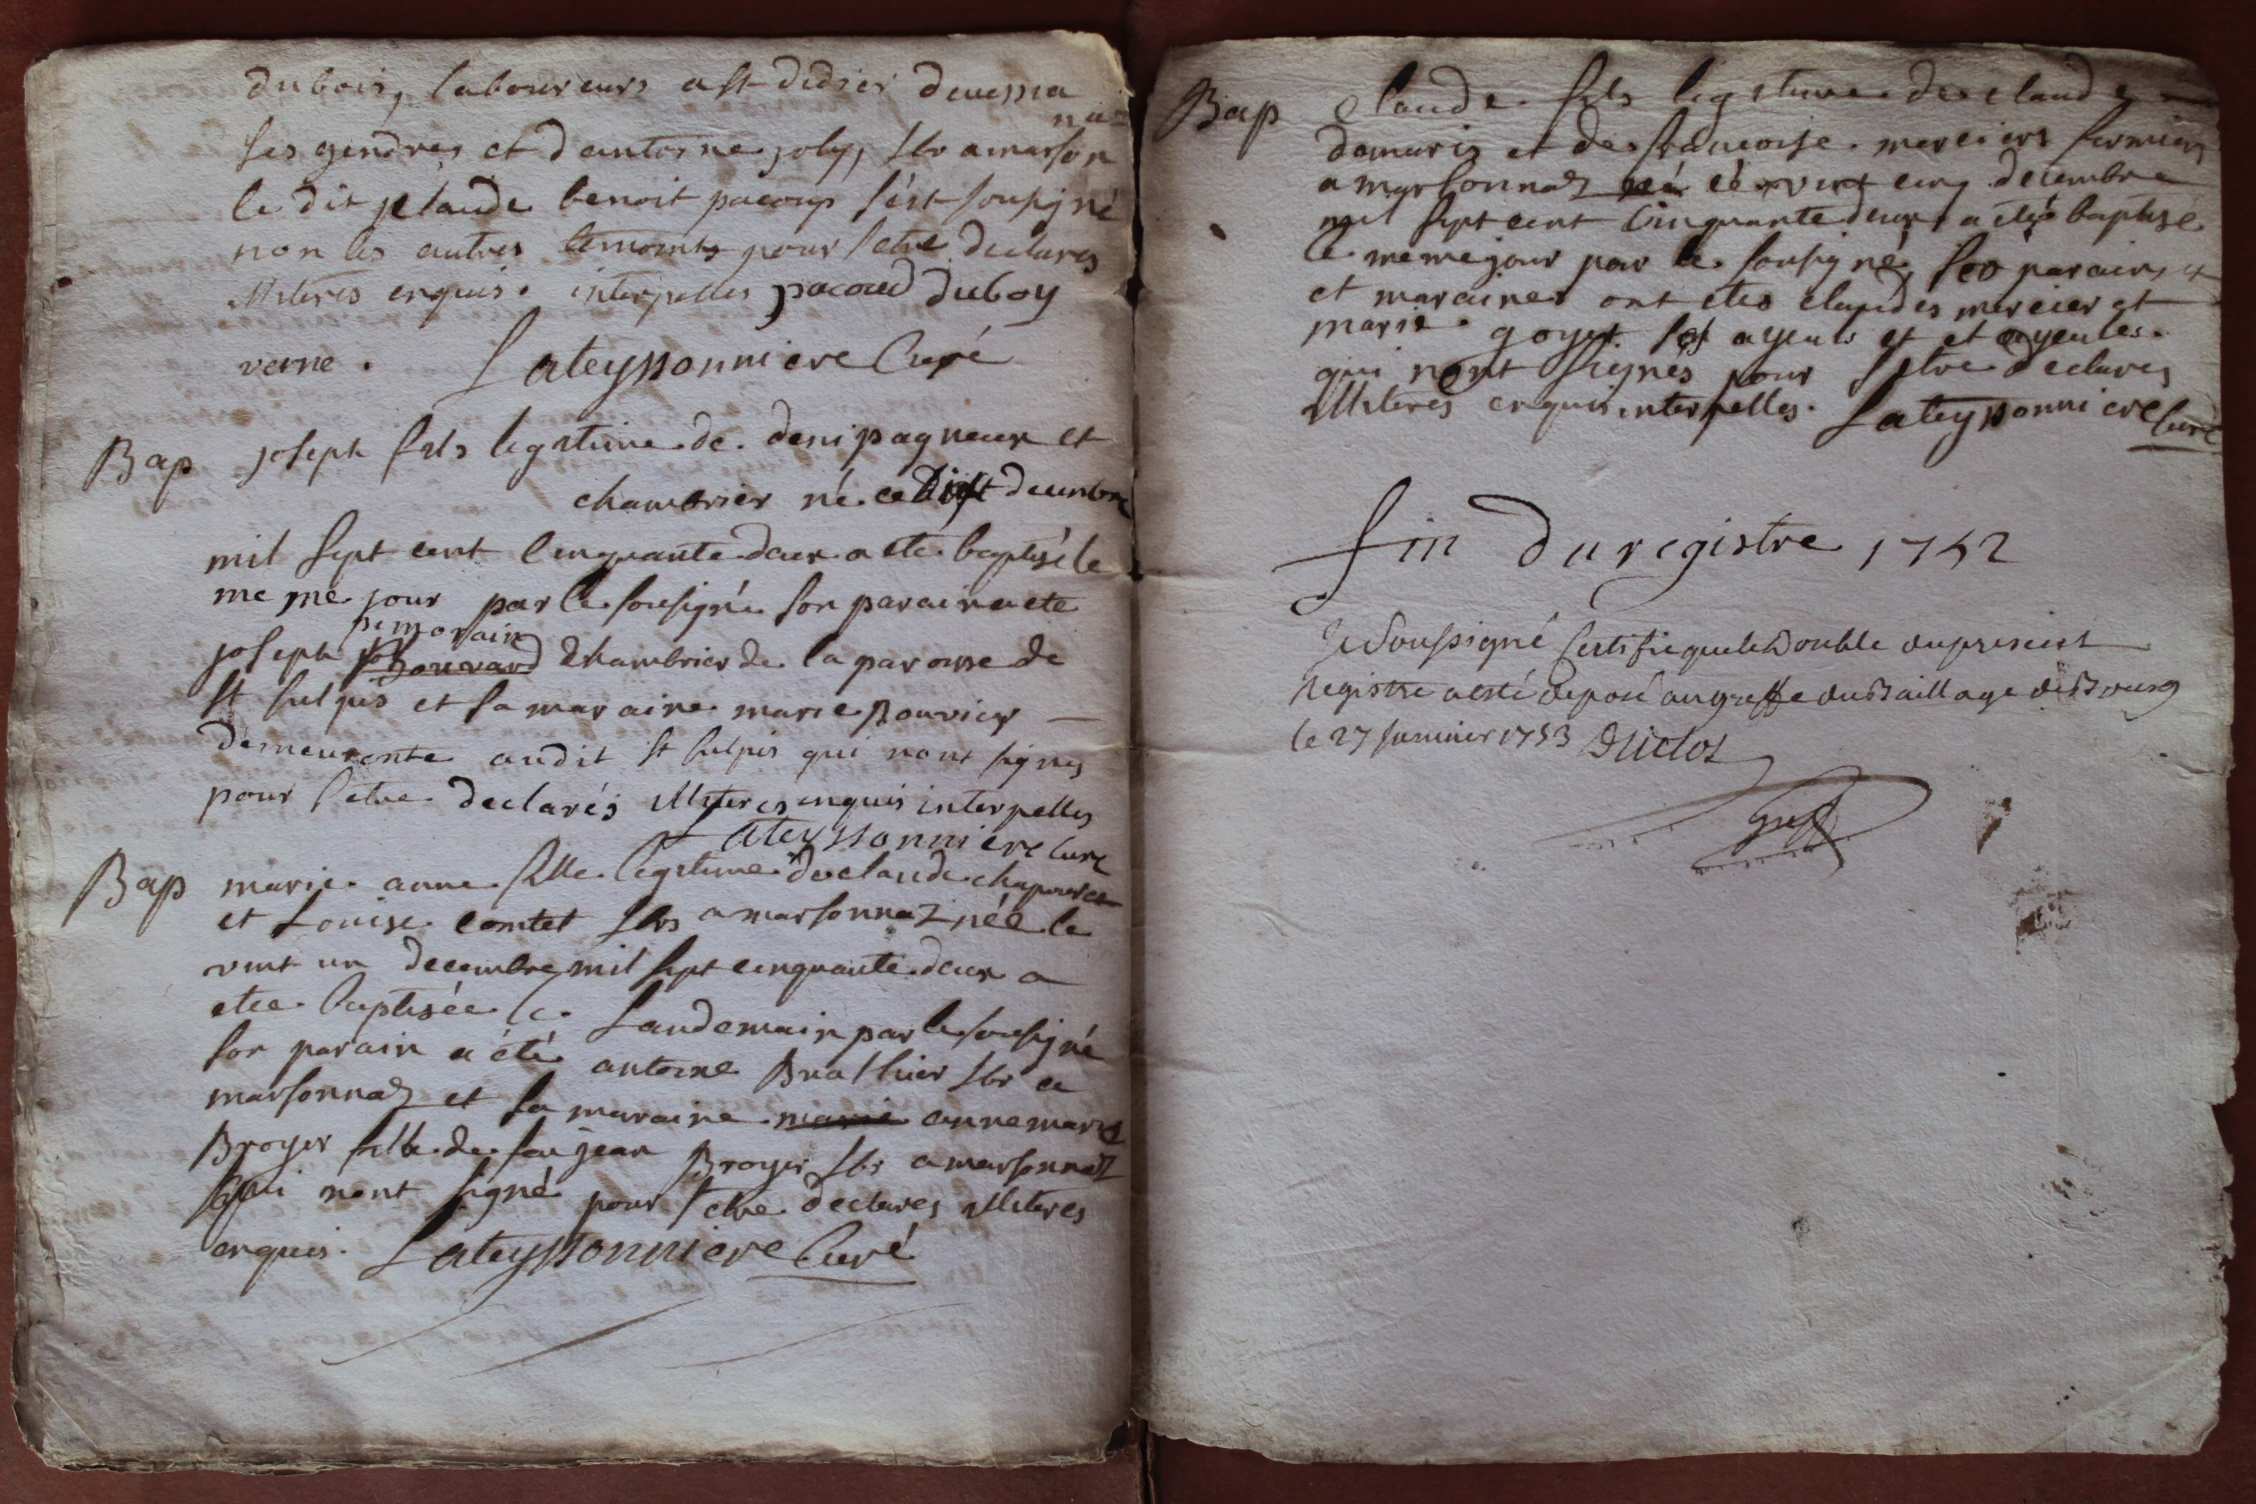 dubois, laboureurs a st didier d'aussia
ses gendres et d'antoine joly, lbr a marson
naz
le dit claude benoit pacoup s'est sousigné
non les autres temoins pour s'etre declares
illiteres enquis. interpelles pacoud duboy
verne. Lateyssonniere Curé
Bap joseph fils legitime de deni pagneux et
chambrier né ce dix sept decembre
mil sept cent cinquante deux a eté baptisé le
meme jour par le sousigné son parain a ete
pemorain
joseph bouvard chambrier de la paroisse de
st sulpis et sa maraine marie Bouvier
demeurente audit st sulpis qui nont signes
pour s'etre declarés illiteres enquis interpelles
Lateyssonniere Curé
Bap marie anne fille legitime de claude chapuis
et Louise comtet lbrs a marsonnaz née le
vint un decembre mil sept cinquante deux a
etee baptisée le landemain par le sousigné
son parain a été antoine Brathier lbr a
marsonnaz et sa maraine marie anne marie
Broyer fille de feu jean Broyer lbr a marsonnaz
qui nont signé pour s'etre declares illiteres
enquis. Lateyssonniere Curé
Bap Claude fils legitime de claude
damaris et de francoise merciers fermiers
a marsonnaz né ce vint cinq decembre
mil sept cent cinquante deux a etée baptisé
le meme jour par le sousigné, ses parains et
et maraines ont etes claudes mercier et
marie goyet ses ayeuls et et ayeules.
qui nont signés pour s'etre declares
illiteres enquis interpelles. Lateyssonniere Curé
fin du registre 1752
Je Soussigné Certifie que le Double du present
Registre a esté deposé au greffe du Baillage de Bourg
le 27 Janvier 1753 Duclos
greff